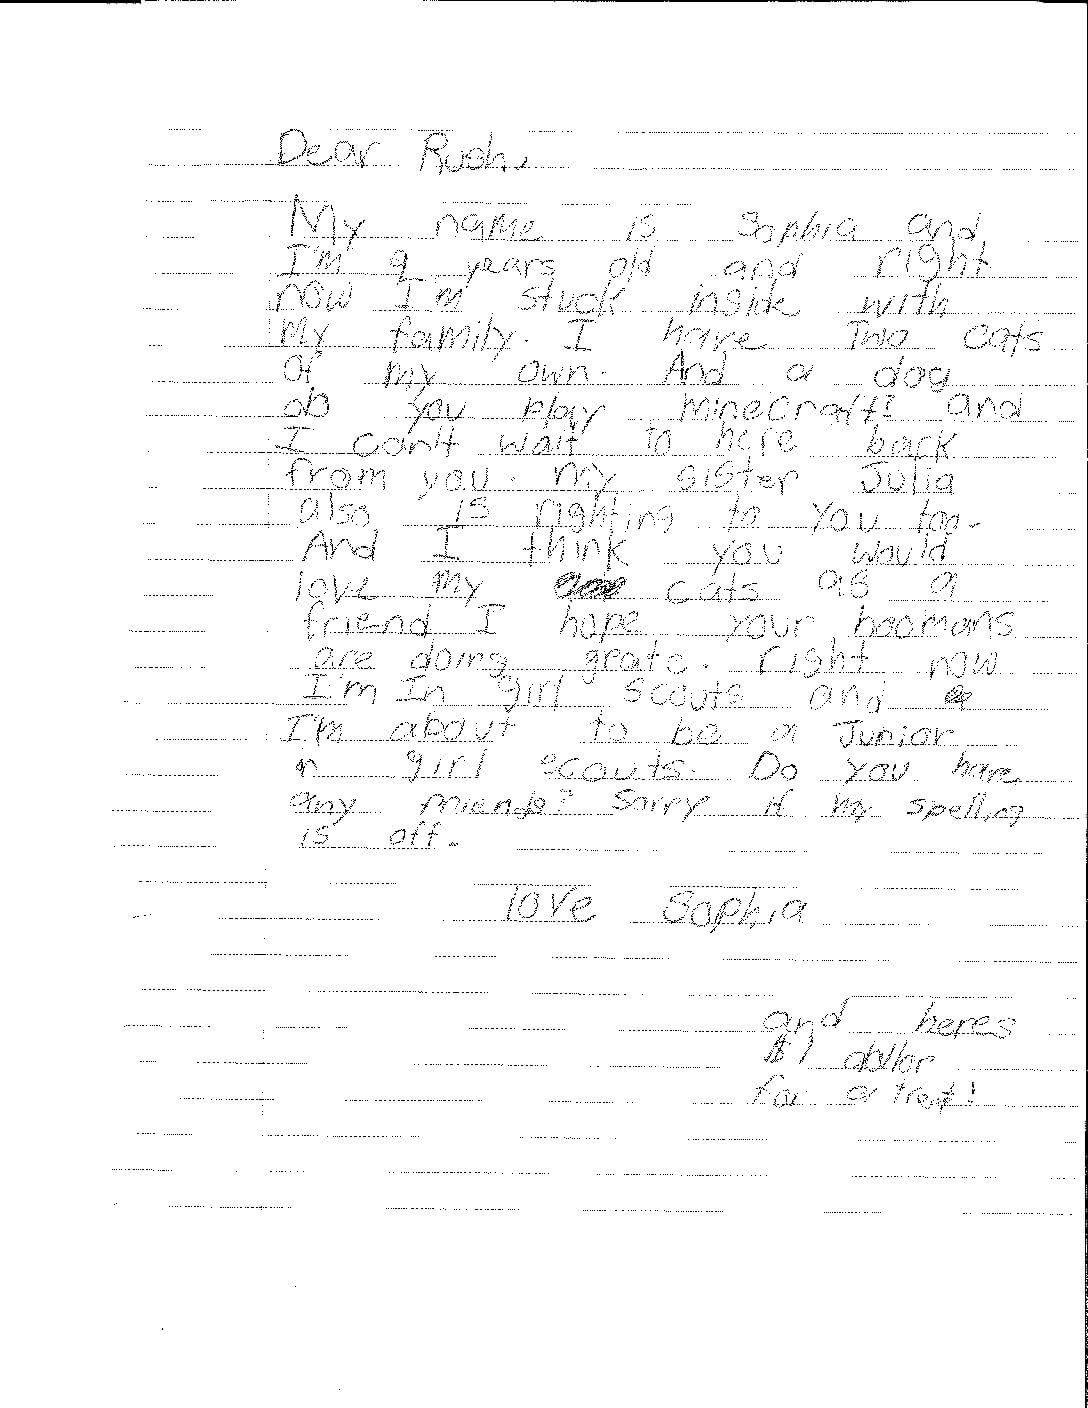 Dear Rush,
My name is Sophia and
I'm 9 years old and right
now I'm stuck inside with
My family. I have Two cats
of my own. And a dog
do you play minecraft? and
I can't wait to here back
from you. my sister Julia
also is righting to you too.
And I think you would
love my cats as a
friend I hope your hoomans
are doing greate. right now
I'm In girl scouts and
I'm about to be a Junior
in girl scouts. Do you have
any friends? Sorry if my spelling
is off.
love Sophia
and heres
$1 dollor
for a treat!